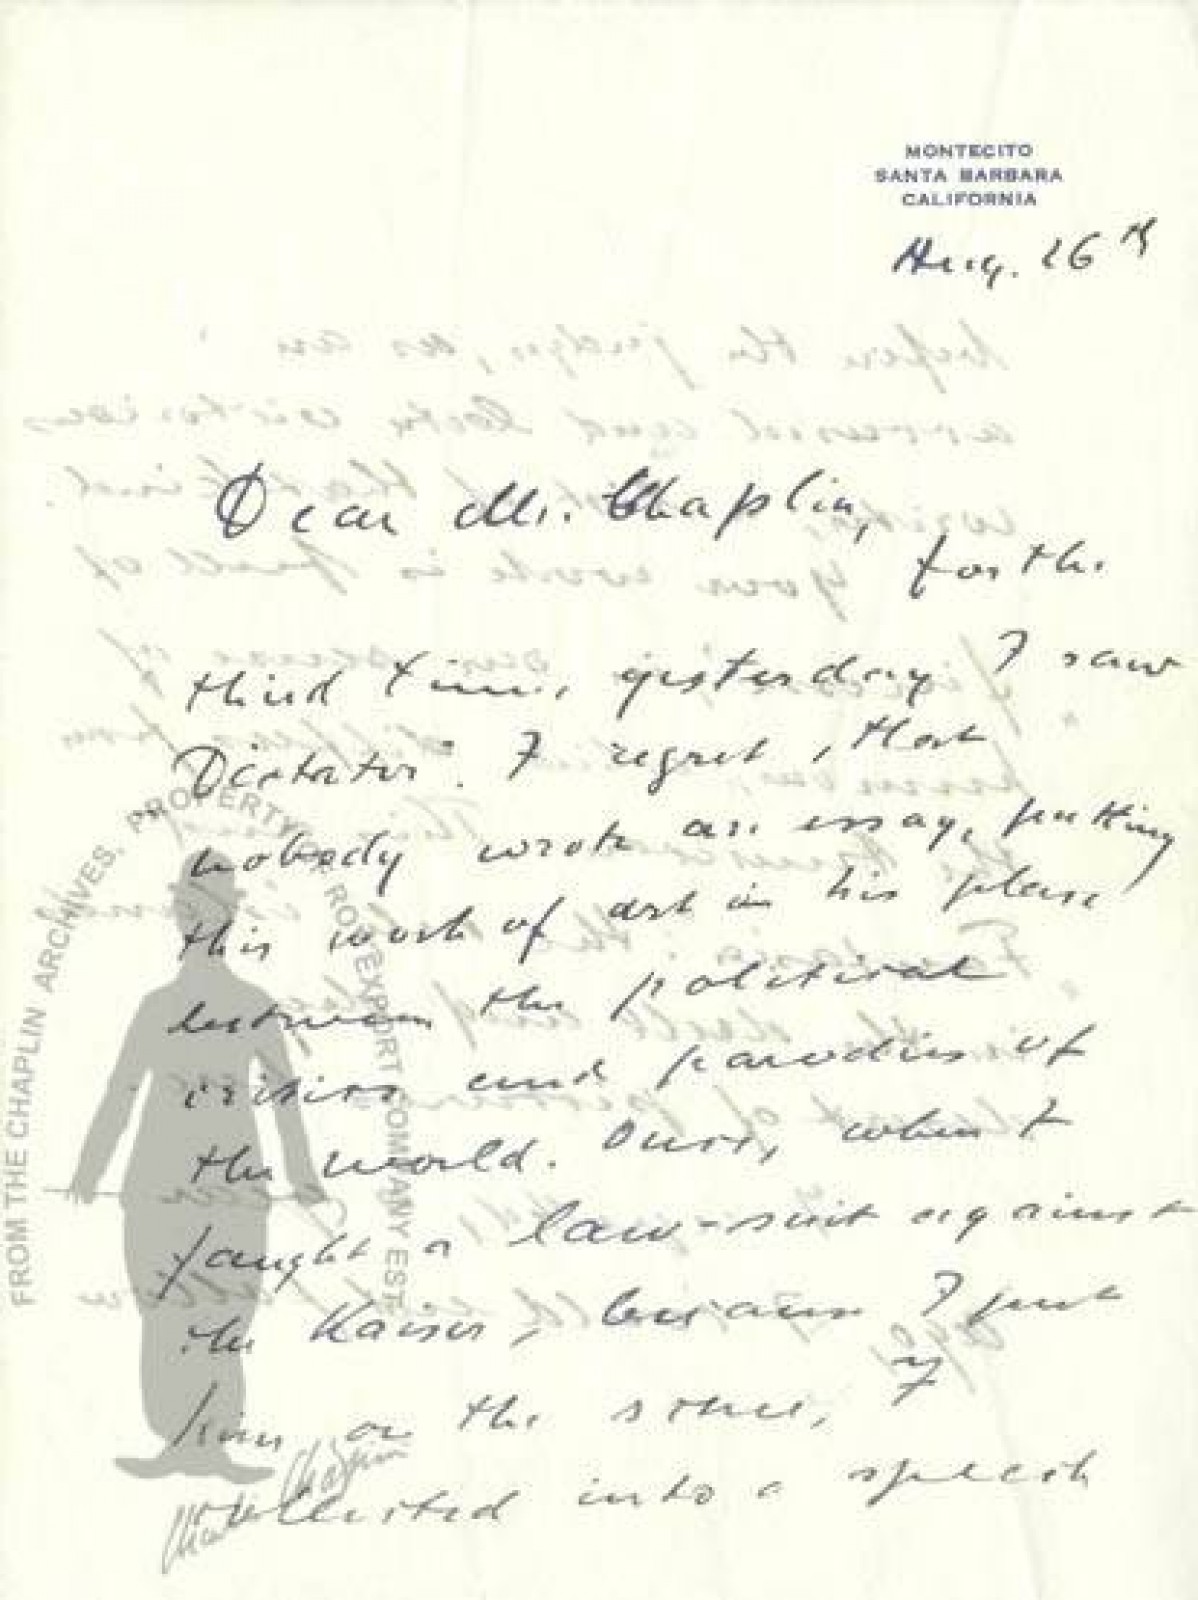 MONTECITO
SANTA BARBARA
CALIFORNIA
Aug. 26th
Dear Mr. Chaplin,
for the
third time, yesterday I saw
Dictator". I regret, that
nobody wrote an essay, putting
this work of art in his place
between the political
crisiss and parodies of
the world. Once, when I
faught a law-suit against
the Kaiser, because I put
him on the scene, I
collected into a speech
FROM THE CHAPLIN ARCHIVES, PROPERTY ROY EXPORT COMPANY EST.
Charlie Chaplin